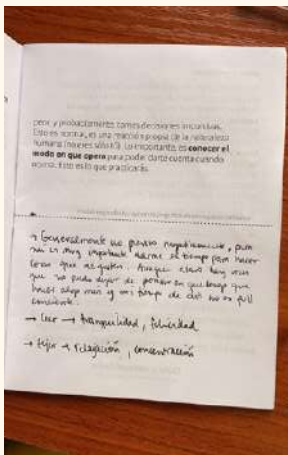 peor, y probablemente tomes decisiones impulsivas.
Esto es normal, es una reacción propia de la naturaleza
humana (no eres sólo tú). Lo importante, es conocer el
modo en que opera para poder darte cuenta cuando
Esto es lo que practicarás.
→ Generalmente no pienso negativamente, para
mi es muy importante darme el tiempo para hacer
cosas que me gusten. Aunque claro hay veces
que no puedo dejar de pensar en que tengo que
hacer algo más y ese tiempo de
consciente.
→ Leer → tranquilidad, felicidad
→ Tejer → relajación, concentración